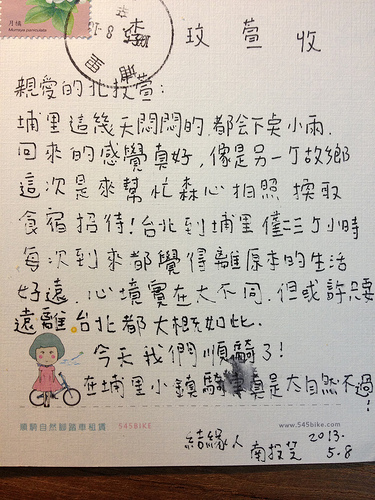 月桃
玫萱 收
親愛的北投萱:
埔里這幾天悶悶的,都會下點小雨.
回來的感覺真好,像是另一个故鄉
這次是來幫忙森心拍照 換取
食宿招待!台北到埔里僅三个小時
每次到來都覺得離原本的生活
好遠. 心境實在大不同.但或許只要
遠離台北都大概如此.
今天我們順騎了!
在埔里小鎮騎車真是大自然不過!
順騎自然腳踏車租賃 545BIKE
www.545bike.com
結緣人 南投芝 2013.
5.8